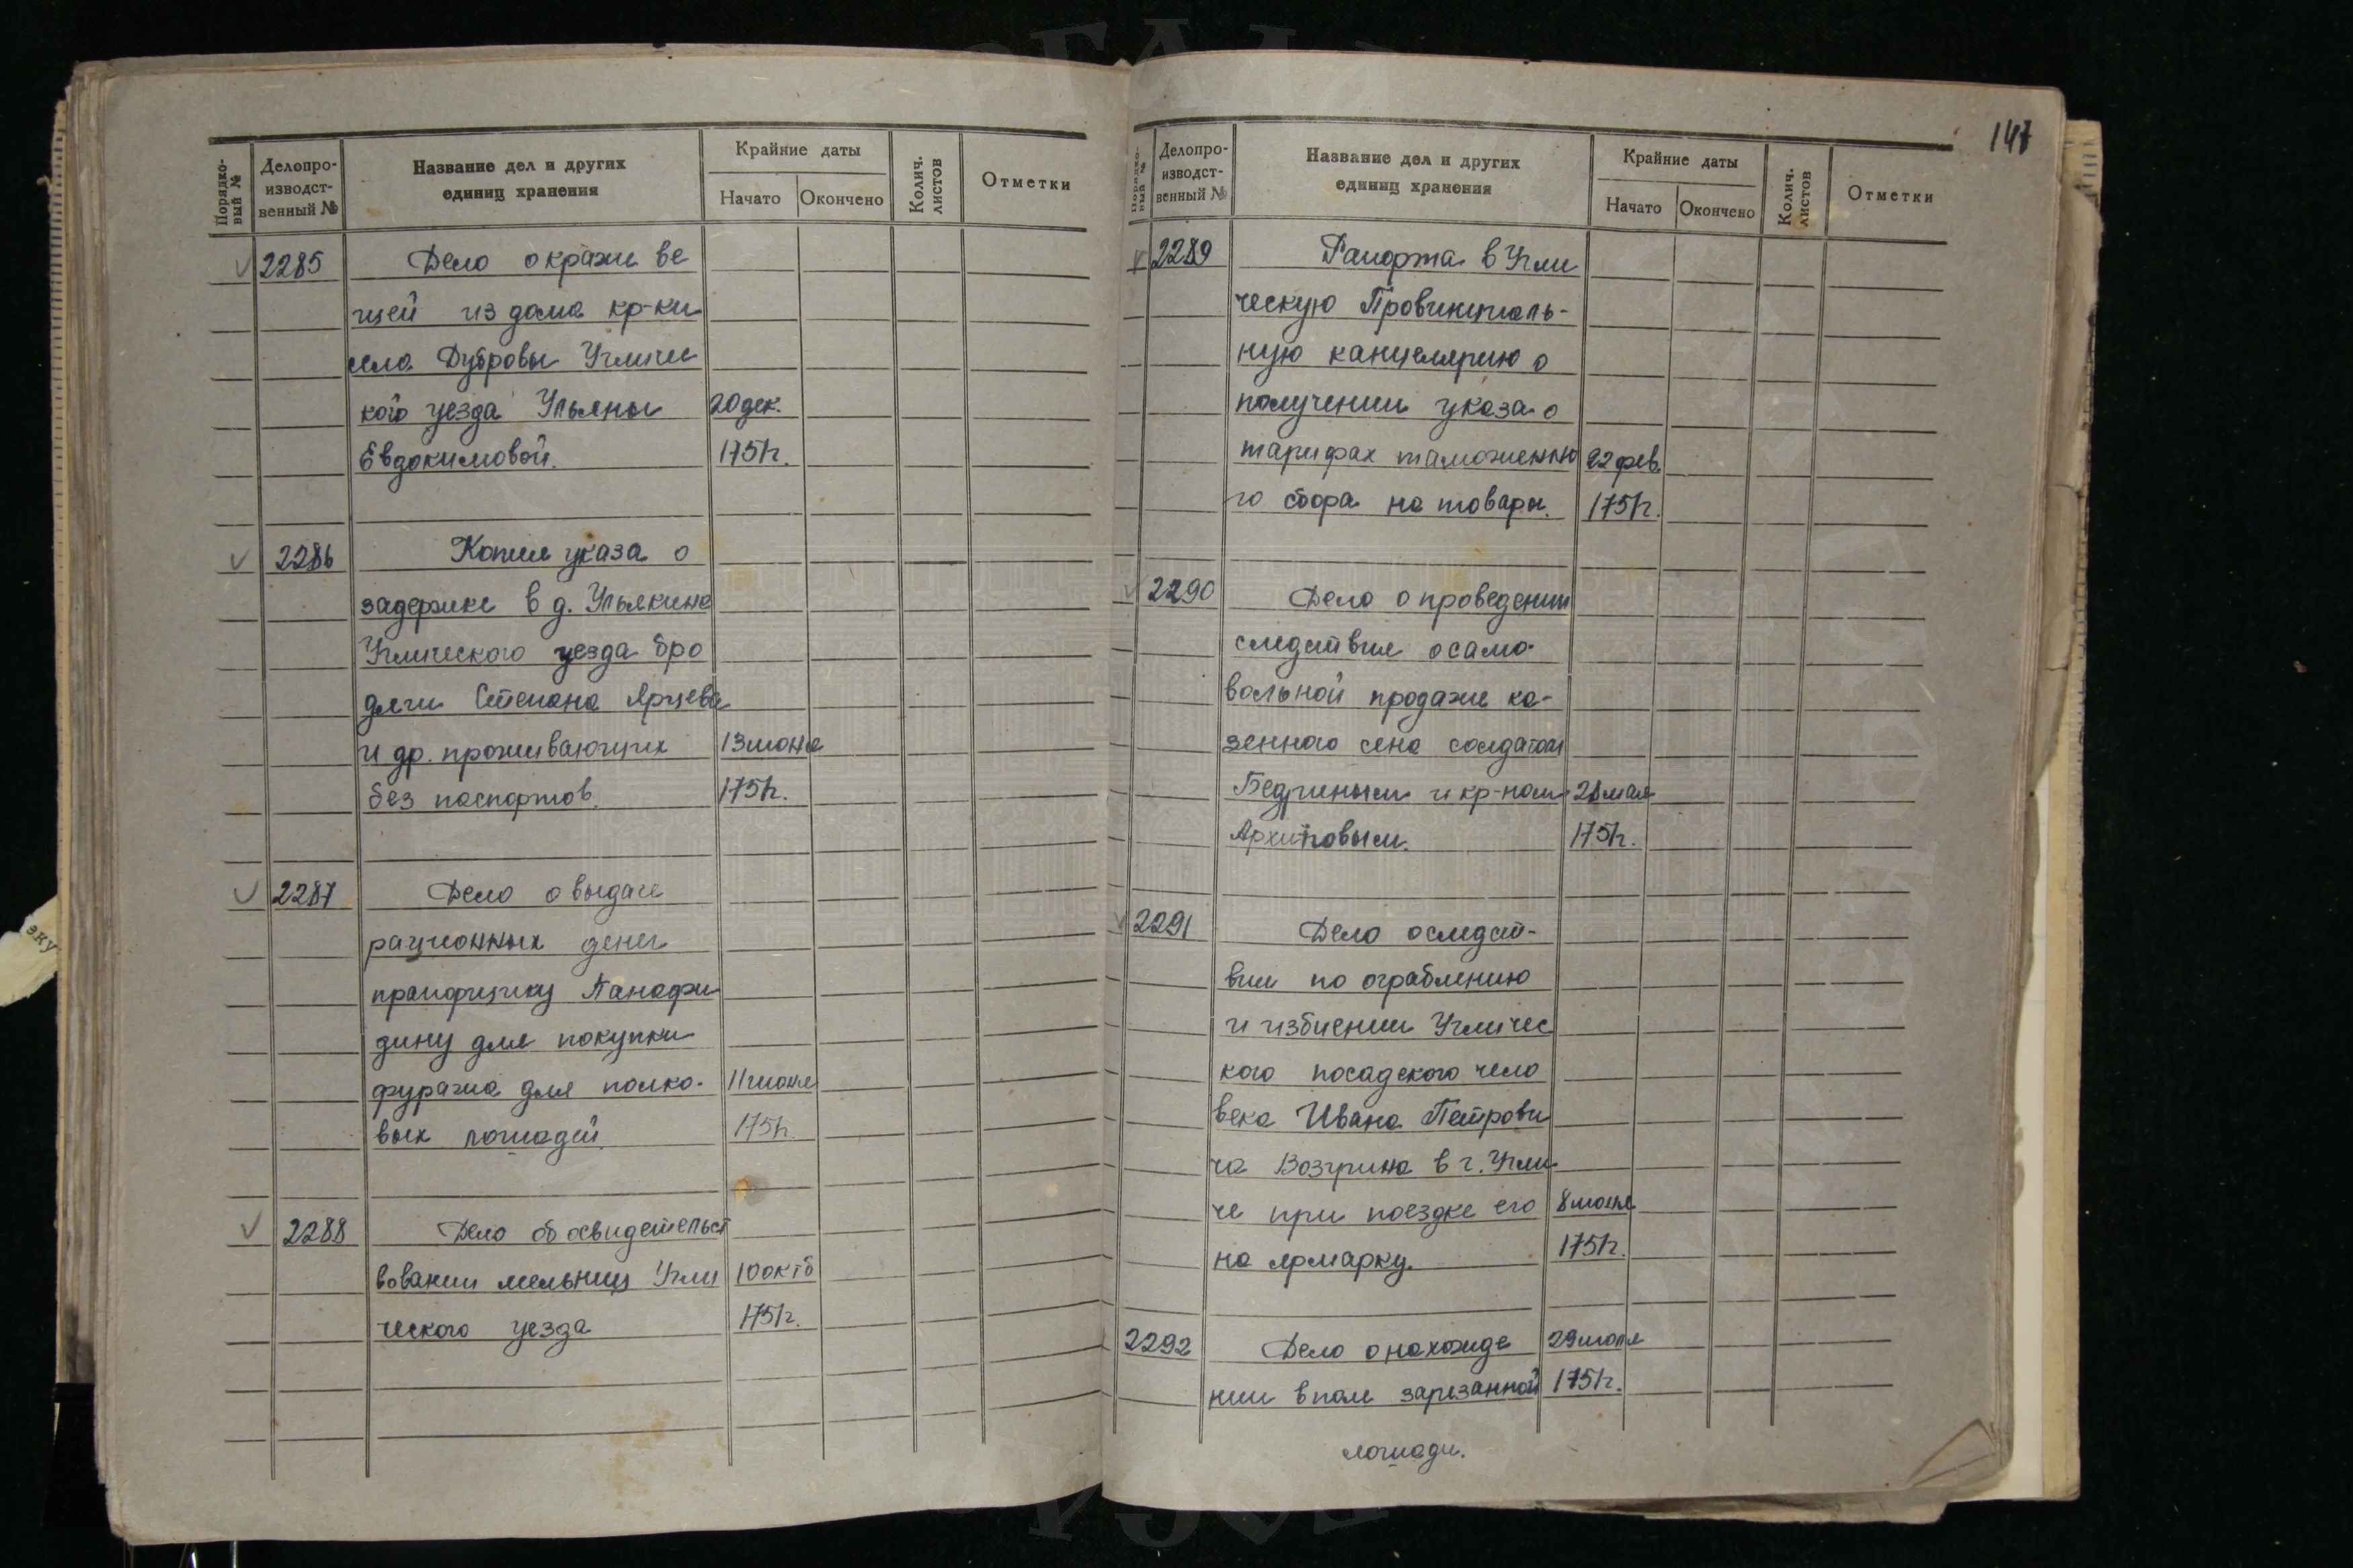 Порядко-
вый №
Делопро-
изводст-
венный №
Название дел и других
единиц хранения
Крайние даты
Начато
Окончено
Колич.
листов
Отметки
2285
Дело о кражи ве
щей из дома кр-ки
села Дубровы Угличс
кого уезда Ульяны
20 дек.
Евдокимовой.
1751г.
2286
Копия указа о
задержке в д. Ульякине
Угличского уезда бро
дяги Степана Ярцева
и др. проживающих
13 июня
без паспортов.
1751г.
2287
Дело о выдаче
рационных денег
прапорщику Панафи
дину для покупки
фуража для полко-
11 июня
вых лошадей.
1751г.
2288
Дело об освидетельст
вовании мельниц Угли
10 октб
ческого уезда
1751г.
147
Порядко-
вый №
Делопро-
изводст-
венный №
Название дел и других
единиц хранения
Крайние даты
Начато
Окончено
Колич.
листов
Отметки
2289
Рапорта в Угли
ческую Провинциаль-
ную канцелярию о
получении указа о
тарифах таможенно
22 фев.
го сбора на товары.
1751г.
2290
Дело о проведении
следствия о само-
вольной продаже ка-
зенного сена солдатом
и кр-ном
мая
Архиповым.
1751г.
2291
Дело о следст-
вии по ограблению
и избиении Угличес
кого посадского чело
века Ивана Петрови
ча Возгрина в г. Угли
че при поездке его
8 июня
на ярмарку.
1751г.
2292
Дело о нахожде
29 июля
нии в поле зарезанной
1751г.
лошади.